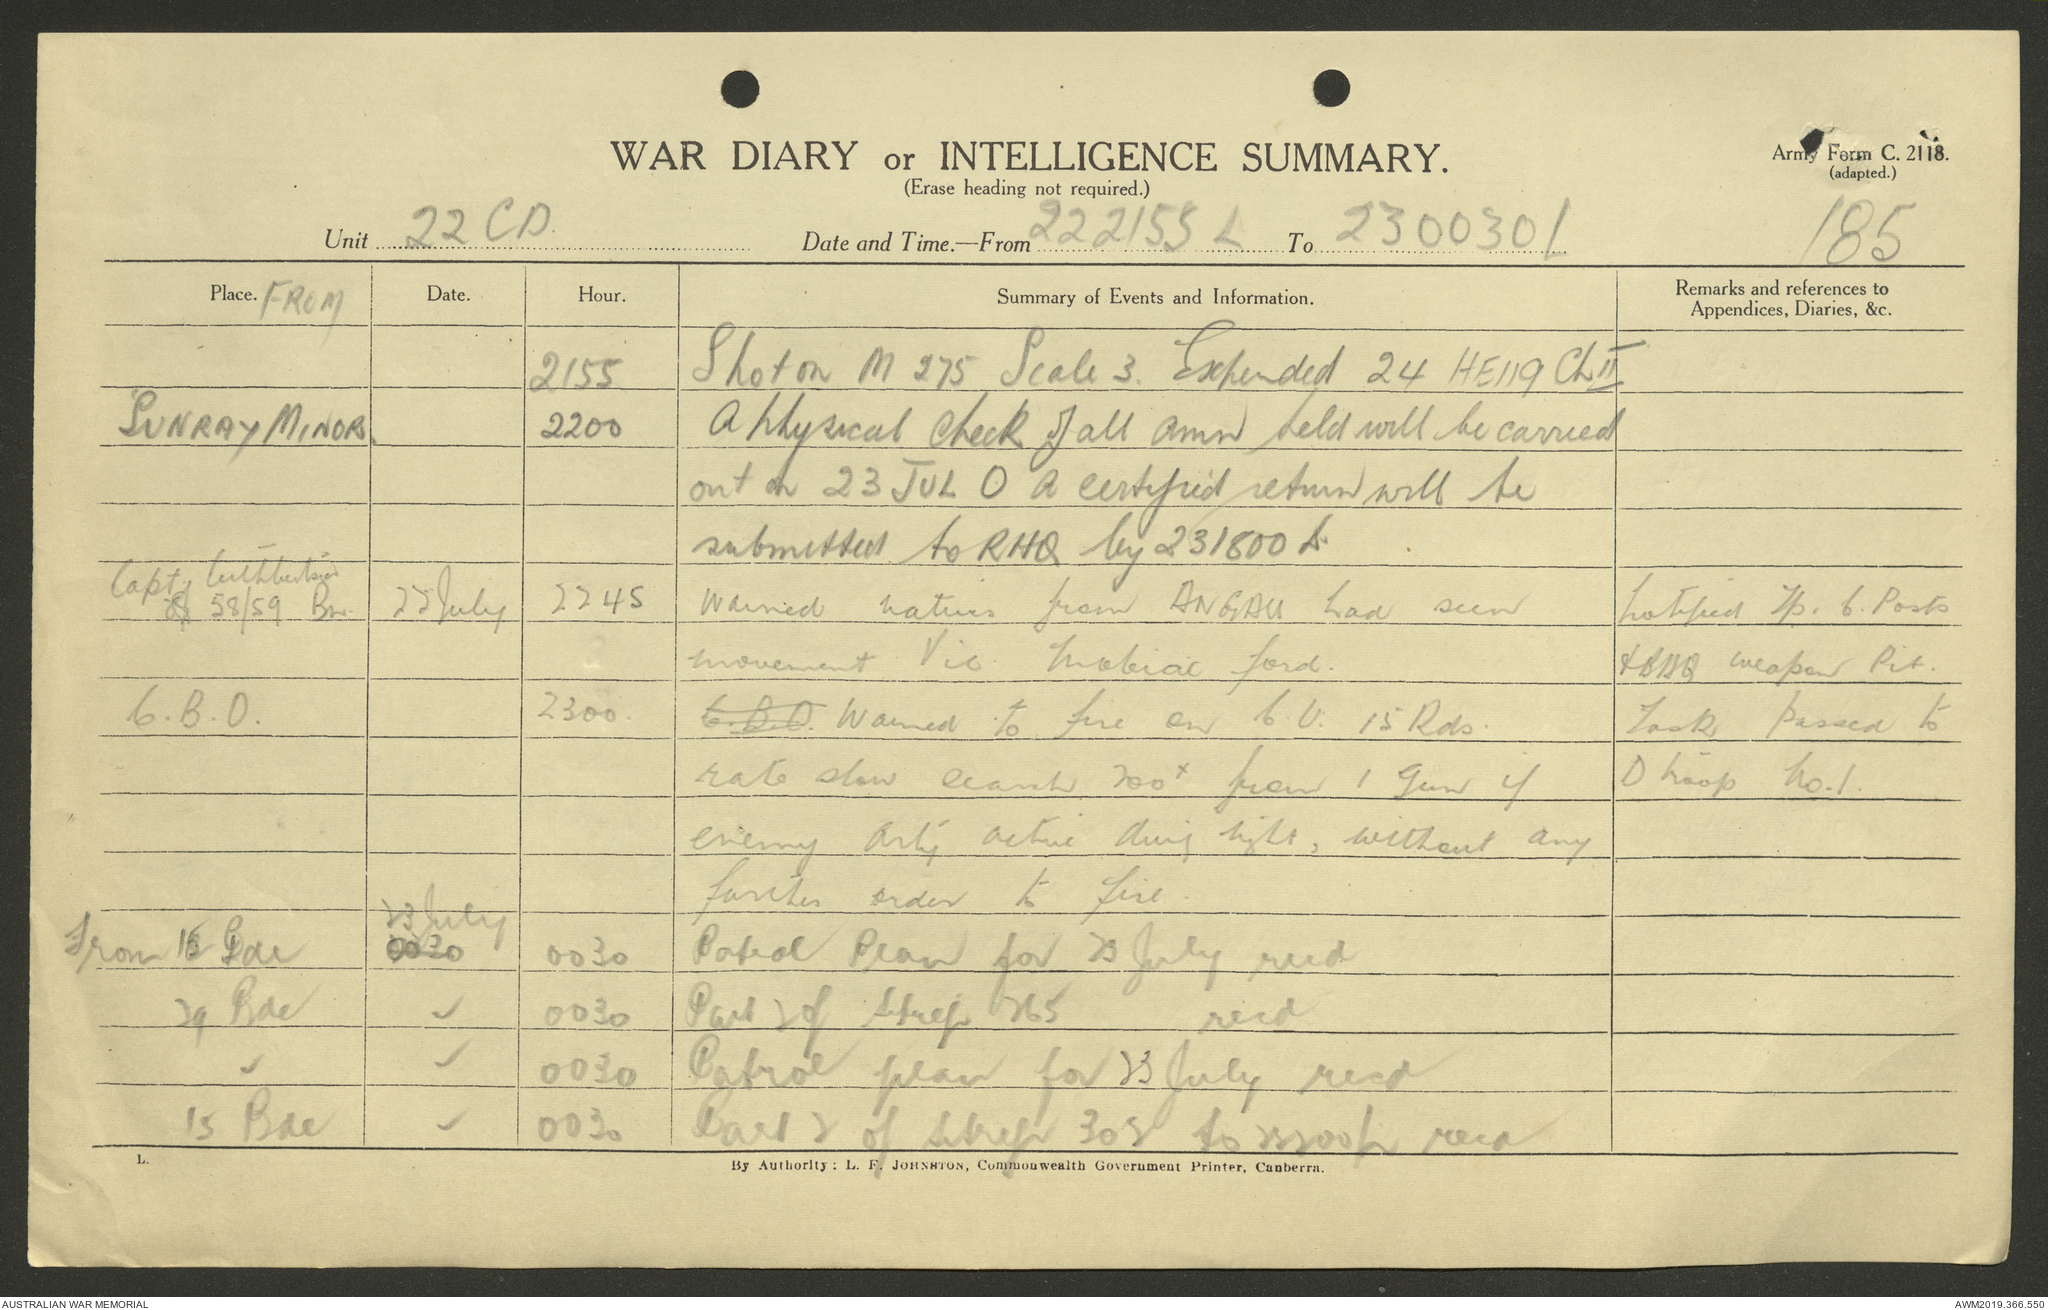 WAR DIARY or INTELLIGENCE SUMMARY.
(Erase heading not required.)
Army Form C. 2118.
(adapted.)
185
Unit 22 CD. Date and Time.—From 222155 L To 230030 L
Place. FROM Date. Hour. Summary of Events and Information. Remarks and references to Appendices, Diaries, &c.
2155 Shot on M 275 Scale 3. Expended 24 HE119 Ch II
SUNRAY MINOR. 2200 A physical check of all amn held will be carried
out on 23 JUL O A certified return will be
submitted to RHQ by 231800 L
Capt. Cuthbertson
of 58/59 Bn. 22 July 2245 Warned natives from ANGAU had seen Notified Tp. C. Posts
movement Vic. Mobiai ford. & BHQ weapon Pit.
C.B.O. 2300. C.B.O. Warned to fire on C.U. 15 Rds. Task passed to
rate slow search 200x from 1 Gun if D Troop No.1.
enemy arty active during night, without any
further order to fire.
23 July
From 15 Bde 0030 0030 Patrol Plan for 23 July recd
29 Bde ✓ 0030 Part 2 of Sitrep 265 recd
✓ ✓ 0030 Patrol plan for 23 July recd
15 Bde ✓ 0030 Part 2 of Sitrep 302 to recd
L.
By Authority: L. F. JOHNSTON, Commonwealth Government Printer, Canberra.
AUSTRALIAN WAR MEMORIAL
AWM2019.366.550